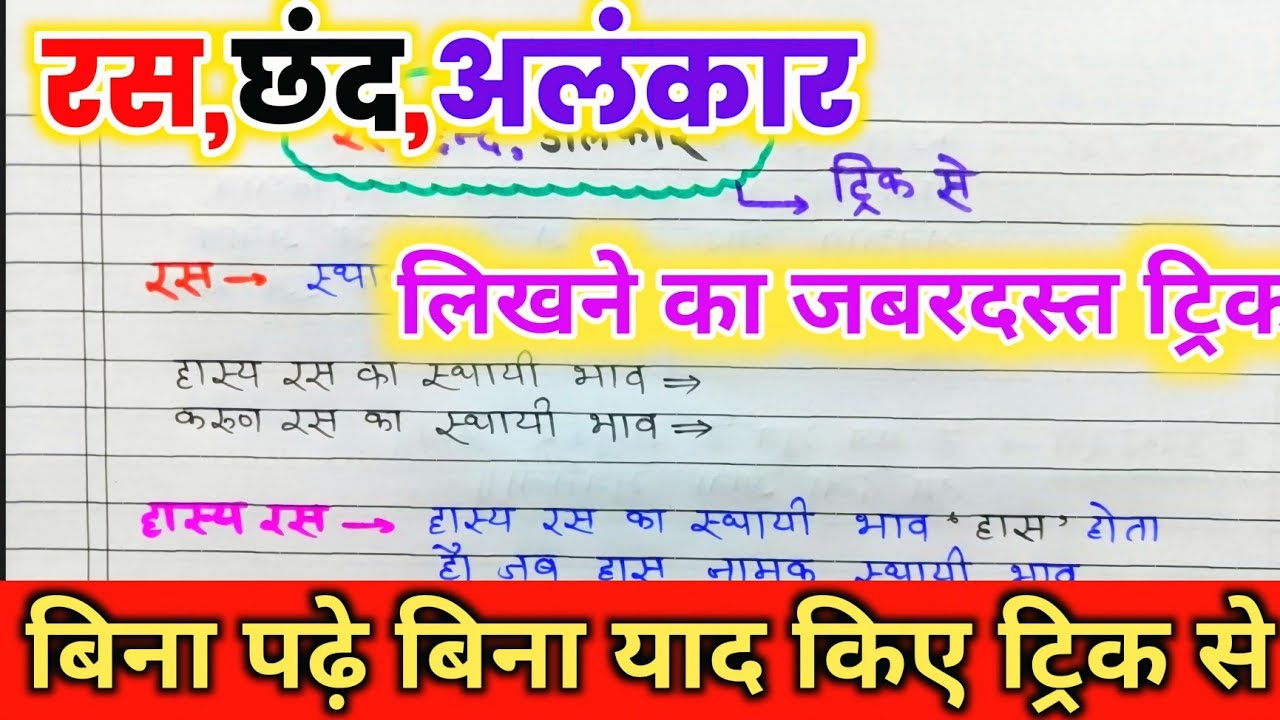 रस,छंद,अलंकार
ट्रिक से
रस → स्था
लिखने का जबरदस्त ट्रिक
हास्य रस का स्थायी भाव ⇒
करुण रस का स्थायी भाव ⇒
हास्य रस → हास्य रस का स्थायी भाव 'हास' होता
है। जब हास नामक स्थायी भाव
बिना पढ़े बिना याद किए ट्रिक से